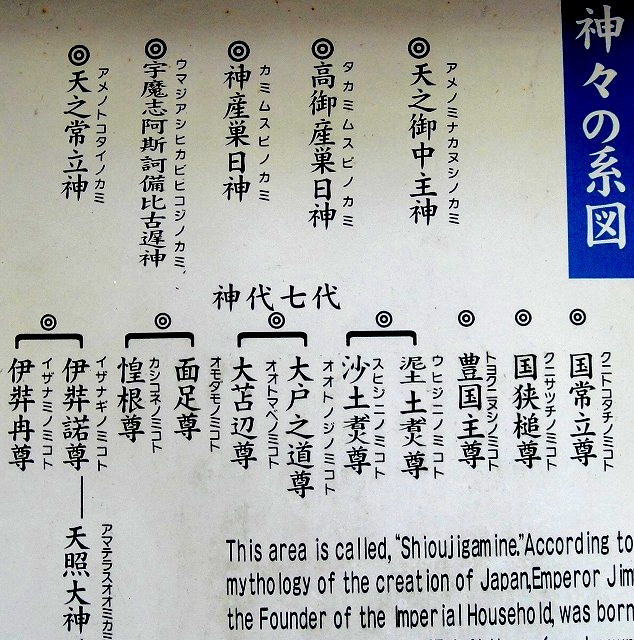 神々の系図
天之御中主神
アメノミナカヌシノカミ
高御産巣日神
タカミムスビノカミ
神産巣日神
カミムスビノカミ
宇魔志阿斯訶備比古遅神
ウマジアシヒカビヒコジノカミ
天之常立神
アメノトコタイノカミ
神代七代
国常立尊
クニトコタチノミコト
国狭槌尊
クニサッチノミコト
豊国主尊
トヨクニヌシノミコト
泥土煑尊
ウヒジニノミコト
沙土煑尊
スヒジニノミコト
大戸之道尊
オオトノジノミコト
大苫辺尊
オオトマベノミコト
面足尊
オモダモノミコト
惶根尊
カシコネノミコト
伊弉諾尊
イザナギノミコト
伊弉冉尊
イザナミノミコト
天照大神
アマテラスオオミカミ
This area is called, “Shioujigamine.”According to
mythology of the creation of Japan,Emperor Jim
the Founder of the Imperial Household, was born